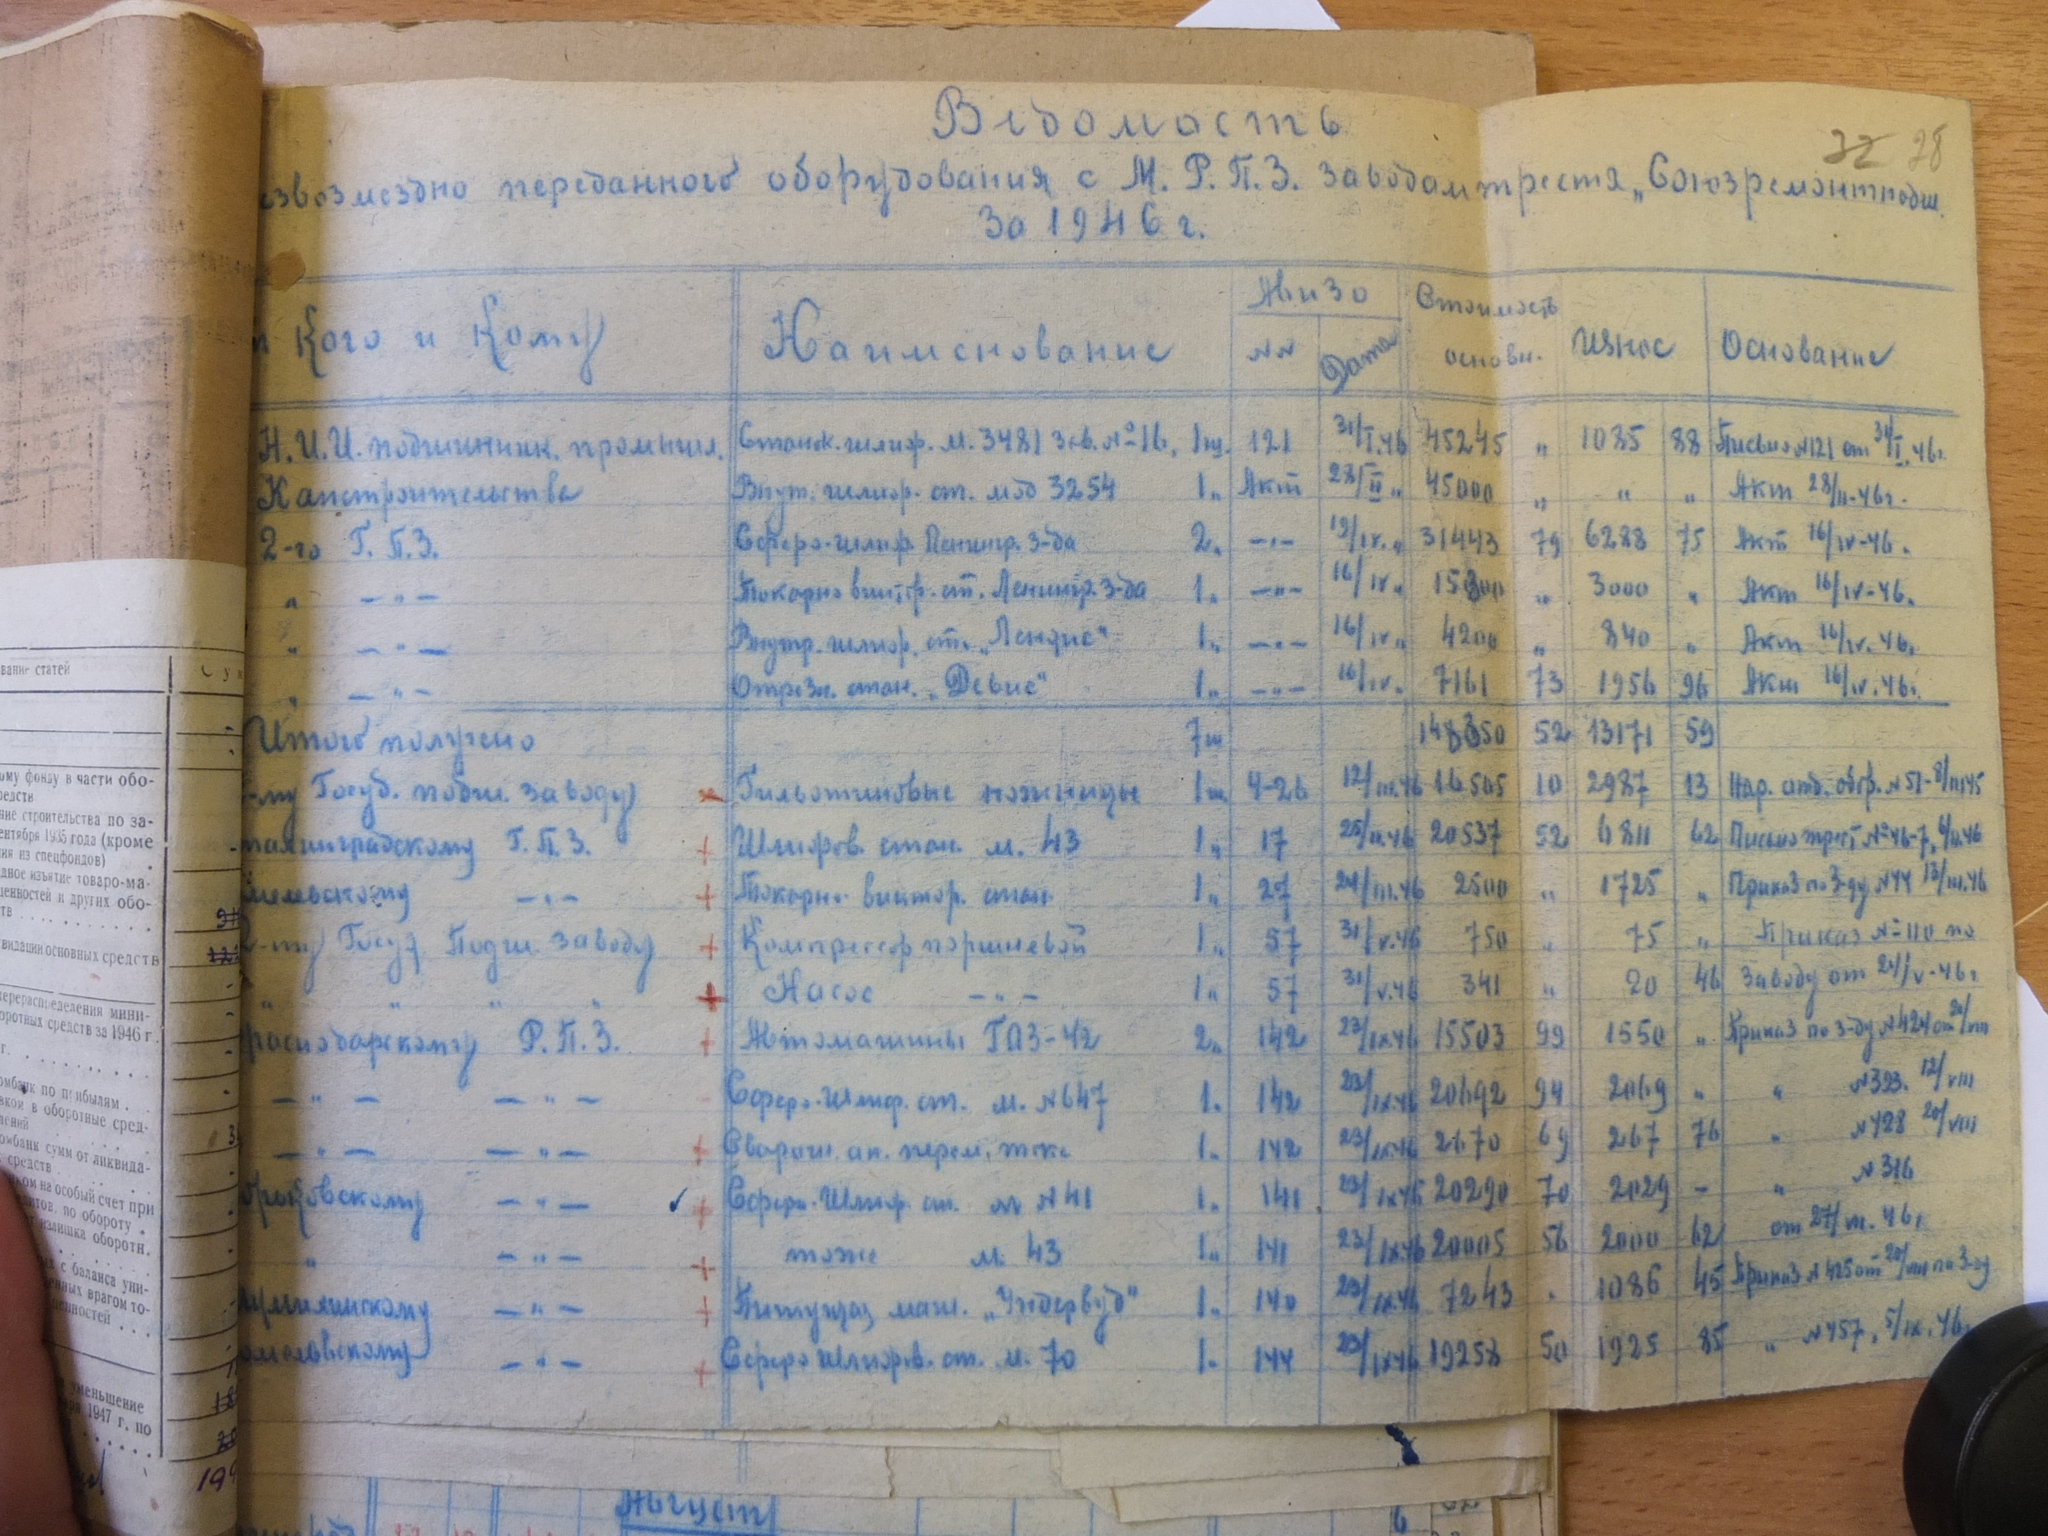 Ведомость
22 28
езвозмездно переданного оборудования с М.Р.П.З. заводам треста „Союзремонтподш.
За 1946 г.
Кого и Кому
Наименование
Авизо
NN
Дата
Стоимость основн.
Износ
Основание
Н.И.И. подшипник. промышл. Станок. шлиф. м. 3481 зав. №16, 1ш. 121 31/I.46 45245 „ 1085 88 Письмо N121 от 31/I.46г.
Капстроительства Внут. шлиф. ст. мод 3254 1„ Акт 28/II„ 45000 „ „ „ Акт 28/II-46г.
2-го Г.П.З. Сферо-шлиф. Ленингр. З-да 2„ —„— 19/IV.„ 31443 79 6288 75 Акт 16/IV-46.
„ —„— Токарно винт.р. ст. Ленингр. З-да 1„ —„— 16/IV„ 15300 „ 3000 „ Акт 16/IV-46.
„ —„— Внутр. шлиф. ст. 1„ —„— 16/IV„ 4200 „ 840 „ Акт 16/IV.46.
„ —„— Отрезн. стан. „Девис" 1„ —„— 16/IV. 7161 73 1956 96 Акт 16/IV.46г.
Итого получено 7ш 148350 52 13171 59
-му Госуд. подш. заводу Гильотиновые ножницы 1ш 4-26 12/III.46 16505 10 2987 13 Нар. отд. обор. N51-8/III45
талинградскому Г.П.З. + Шлифов. стан. м. 43 1„ 17 25/II.46 20537 52 6811 62 Письмо трест №46-7, 6/II.46
—„— + Токарно винтор. стан. 1„ 27 24/III.46 2500 „ 1725 „ Приказ по З-ду N44 13/III.46
-му Госуд Подш. Заводу + Компрессор поршневой 1„ 57 31/V.46 750 „ 75 „ Приказ №110 по
„ „ „ „ + Насос —„— 1„ 57 31/V.46 341 „ 20 46 Заводу от 24/V-46г
раснодарскому Р.П.З. + Автомашины ГАЗ-42 2„ 142 23/IX.46 15503 99 1550 „ Приказ по З-ду N424 от 20/VIII
—„— —„— Сферо-Шлиф. ст. м. N647 1„ 142 23/IX.46 20692 94 2069 „ „ N393. 12/VIII
—„— —„— + Свароч. ап. перем. тока 1„ 142 23/IX.46 2670 69 267 76 „ N428 20/VIII
—„— + Сферо-Шлиф. ст. м N41 1„ 141 23/IX.46 20290 70 2029 - „ N316
„ —„— + тоже м. 43 1„ 141 23/IX.46 20005 56 2000 62 от 27/VI.46г
—„— + маш. „Ундервуд" 1„ 140 23/IX.46 7243 . 1086 45 Приказ N425 от 20/VIII по З-ду
омельвскому —„— + Сферо шлифов. ст. м. 70 1„ 144 23/IX46 19258 50 1925 85 „ N457, 5/IX.46г
Август
вание статей
ому фонду в части обо-
редств
ние строительства по за-
ентября 1935 года (кроме
ия из спецфондов)
дное изъятие товаро-ма-
ценностей и других обо-
тв
видации основных средств
перераспределения мини-
оротных средств за 1946 г.
г.
омбанк по прибылям
вкой в оборотные сред-
лений
омбанк сумм от ликвида-
средств
ом на особый счет при
нтов. по обороту
т излишка оборотн.
с баланса уни-
енных врагом то-
ценностей
уменьшение
ря 1947 г. по